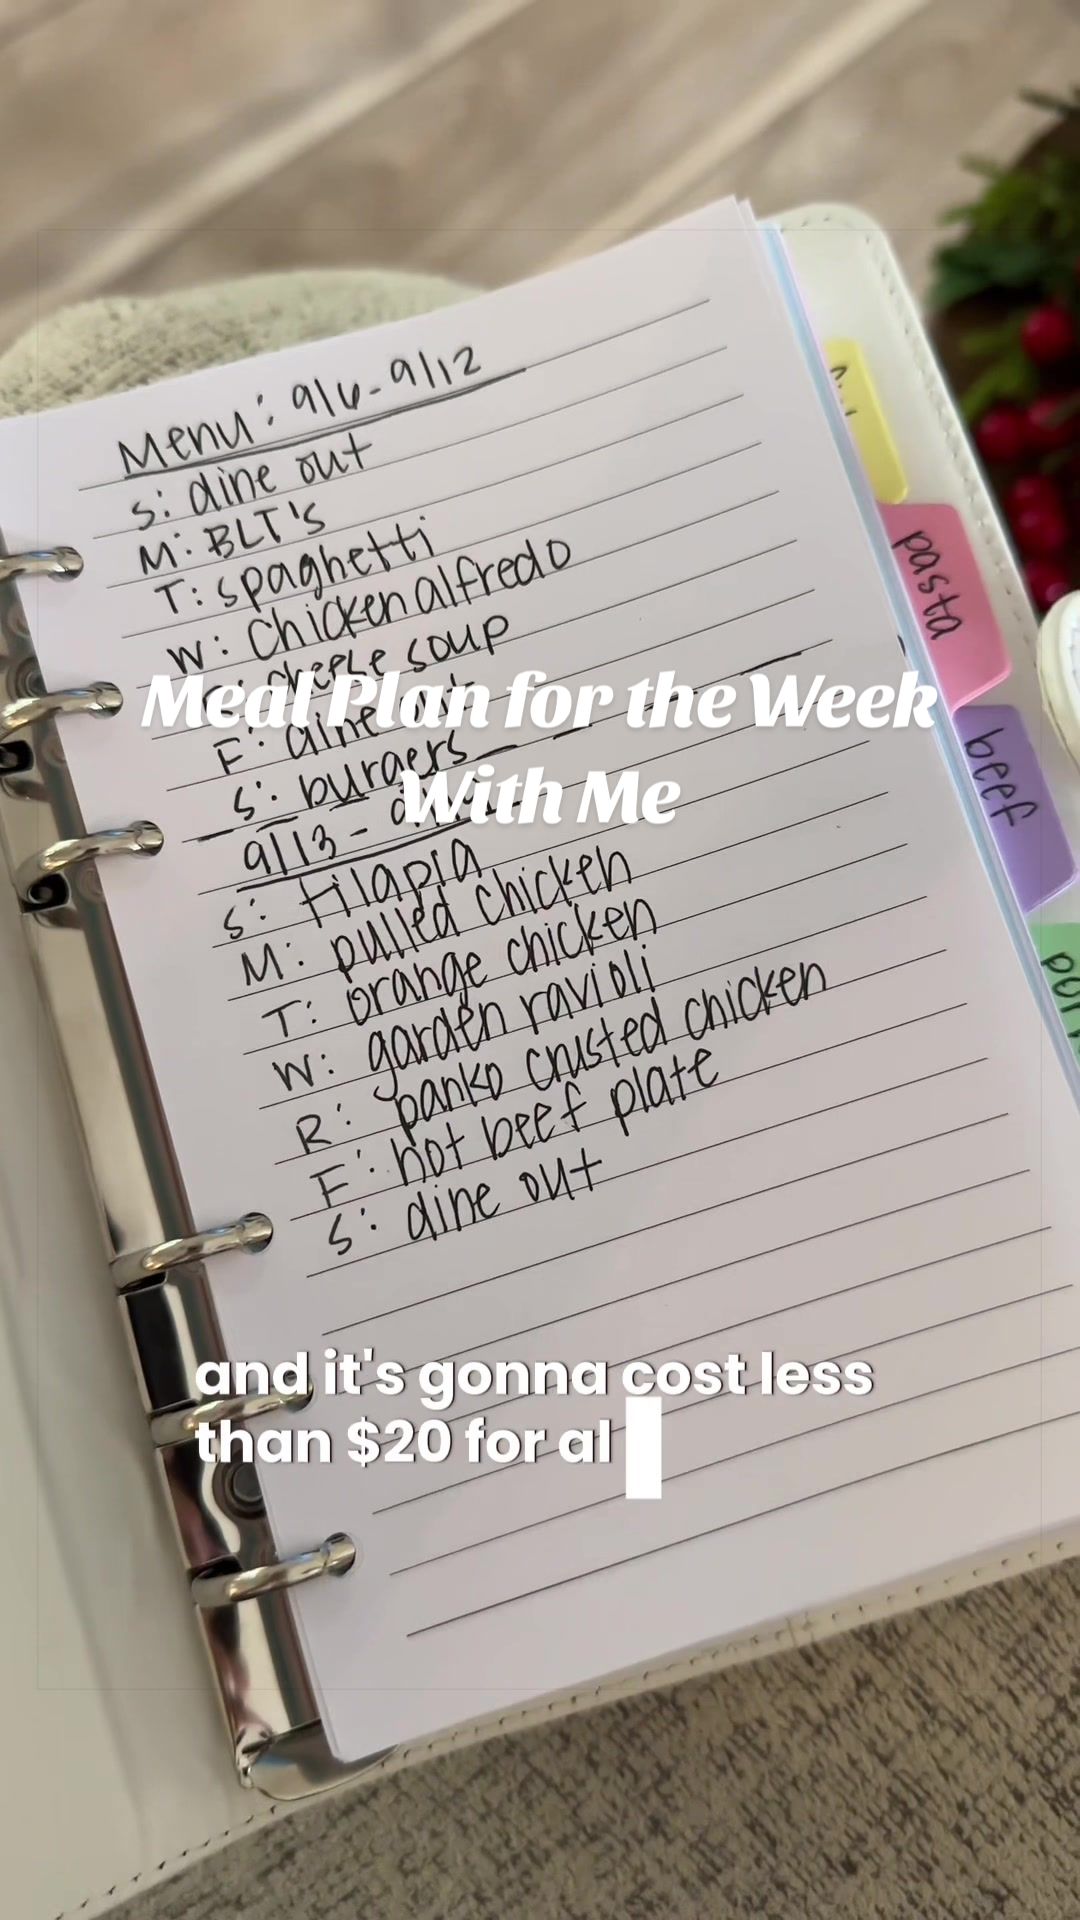 Menu: 9/6-9/12
S: dine out
M: BLT's
T: spaghetti
W: Chicken alfredo
cheese soup
F: dine
S: burgers
9/13 -
S: tilapia
M: pulled chicken
T: orange chicken
W: garden ravioli
R: panko crusted chicken
F: hot beef plate
S: dine out
pasta
beef
Meal Plan for the Week
With Me
and it's gonna cost less
than $20 for al